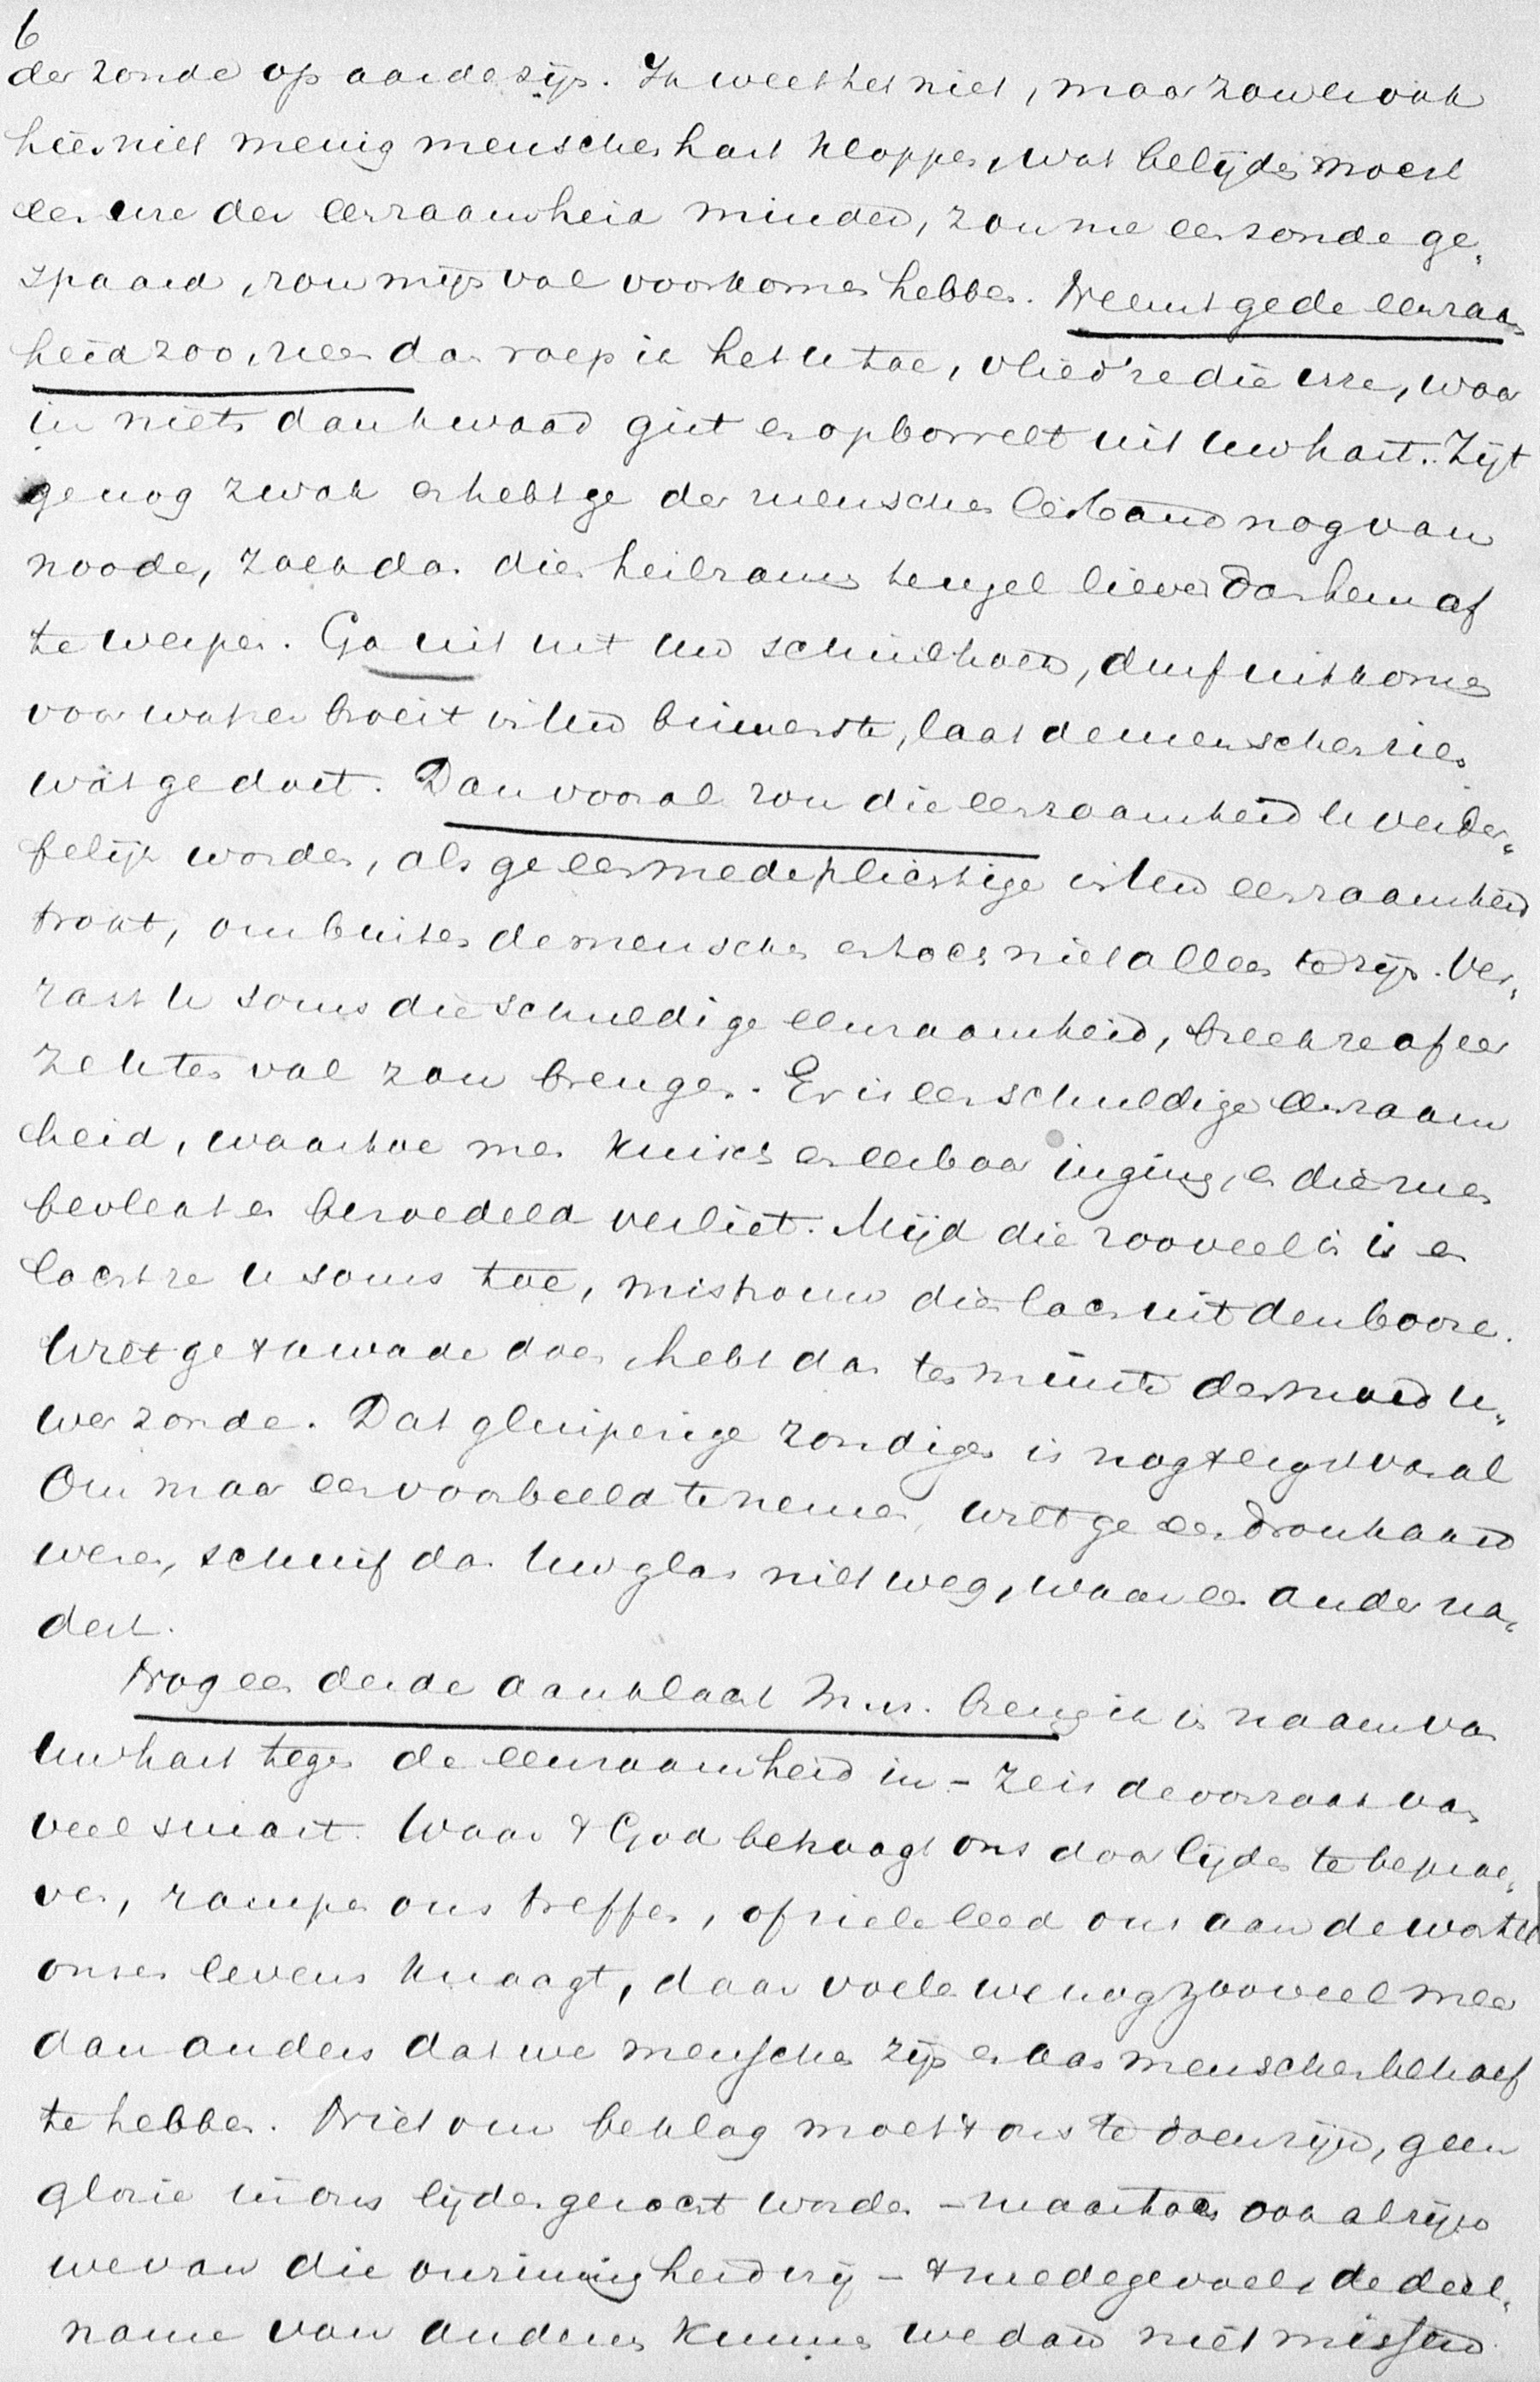 6
der zonde op aarde zijn. Ik weet het niet, maar zou ook
hier niet menig menschenhart kloppen, wat belijden moest
een ure der eenzaamheid minder, zou me een zonde ge-
spaard, zou mijn val voorkomen hebben. Neemt ge de eenzaam
heid zoo, neen dan roep ik het u toe, vlied' ze die ure, waar
in niets dan kwaad gist en opborrelt uit uw hart. Zijt
ge nog zwak en hebt ge der menschen leiband nog van
noode, zoek dan dien heilzamen teugel liever dan hem af
te werpen. Ga uit uit uw schuilhoek, durf uitkomen
voor wat er broeit in uw binnenste, laat de menschen zien
wat ge doet. Dan vooral zou die eenzaamheid u verder-
felijk worden, als ge een medeplichtige in uw eenzaamheid
trokt, om buiten de menschen en toch niet alleen te zijn. Ver-
rast u soms die schuldige eenzaamheid, breek ze af eer
ze u ten val zou brengen. Er is een schuldige eenzaam
heid, waartoe men kuisch en eerbaar inging, en die men
bevlekt en bezoedeld verliet. Mijd die zooveel in u is en
lacht ze u soms toe, mistrouw dien lach uit den booze.
Wilt ge 't kwade doen, hebt dan ten minste den moed u-
wer zonde. Dat gluiperige zondigen is nog 't ergst van al
Om maar een voorbeeld te nemen, wilt ge een dronkaard
wezen, schuif dan uw glas niet weg, waar een ander na-
dert.
Nog een derde aanklacht M. vr. breng ik in naam van
uw hart tegen de eenzaamheid in - Ze is de oorzaak van
veel smart. Waar 't God behaagt ons door lijden te beproe-
ven, rampen ons treffen, of zieleleed ons aan de wortel
onzes levens knaagt, daar voelen we nog zooveel meer
dan anders dat we menschen zijn en aan menschen behoef
te hebben. Niet om beklag moet 't ons te doen zijn, geen
glorie in ons lijden gezocht worden - maar toch ook al zijn
we van die onzinnigheid vrij - 't medegevoel, de deel-
name van anderen kunnen we dan niet missen